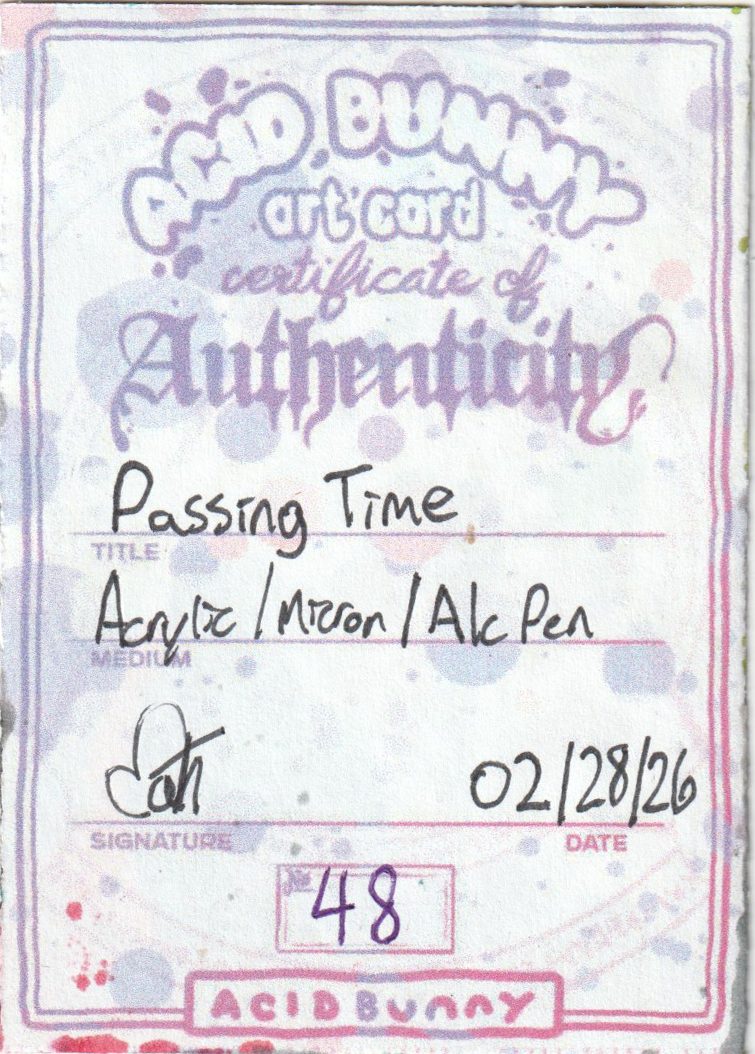 ACID BUNNY
art card
certificate of
Authenticity
Passing Time
TITLE
Acrylic / Micron / Alc Pen
MEDIUM
02/28/26
SIGNATURE DATE
No 48
ACID BUNNY